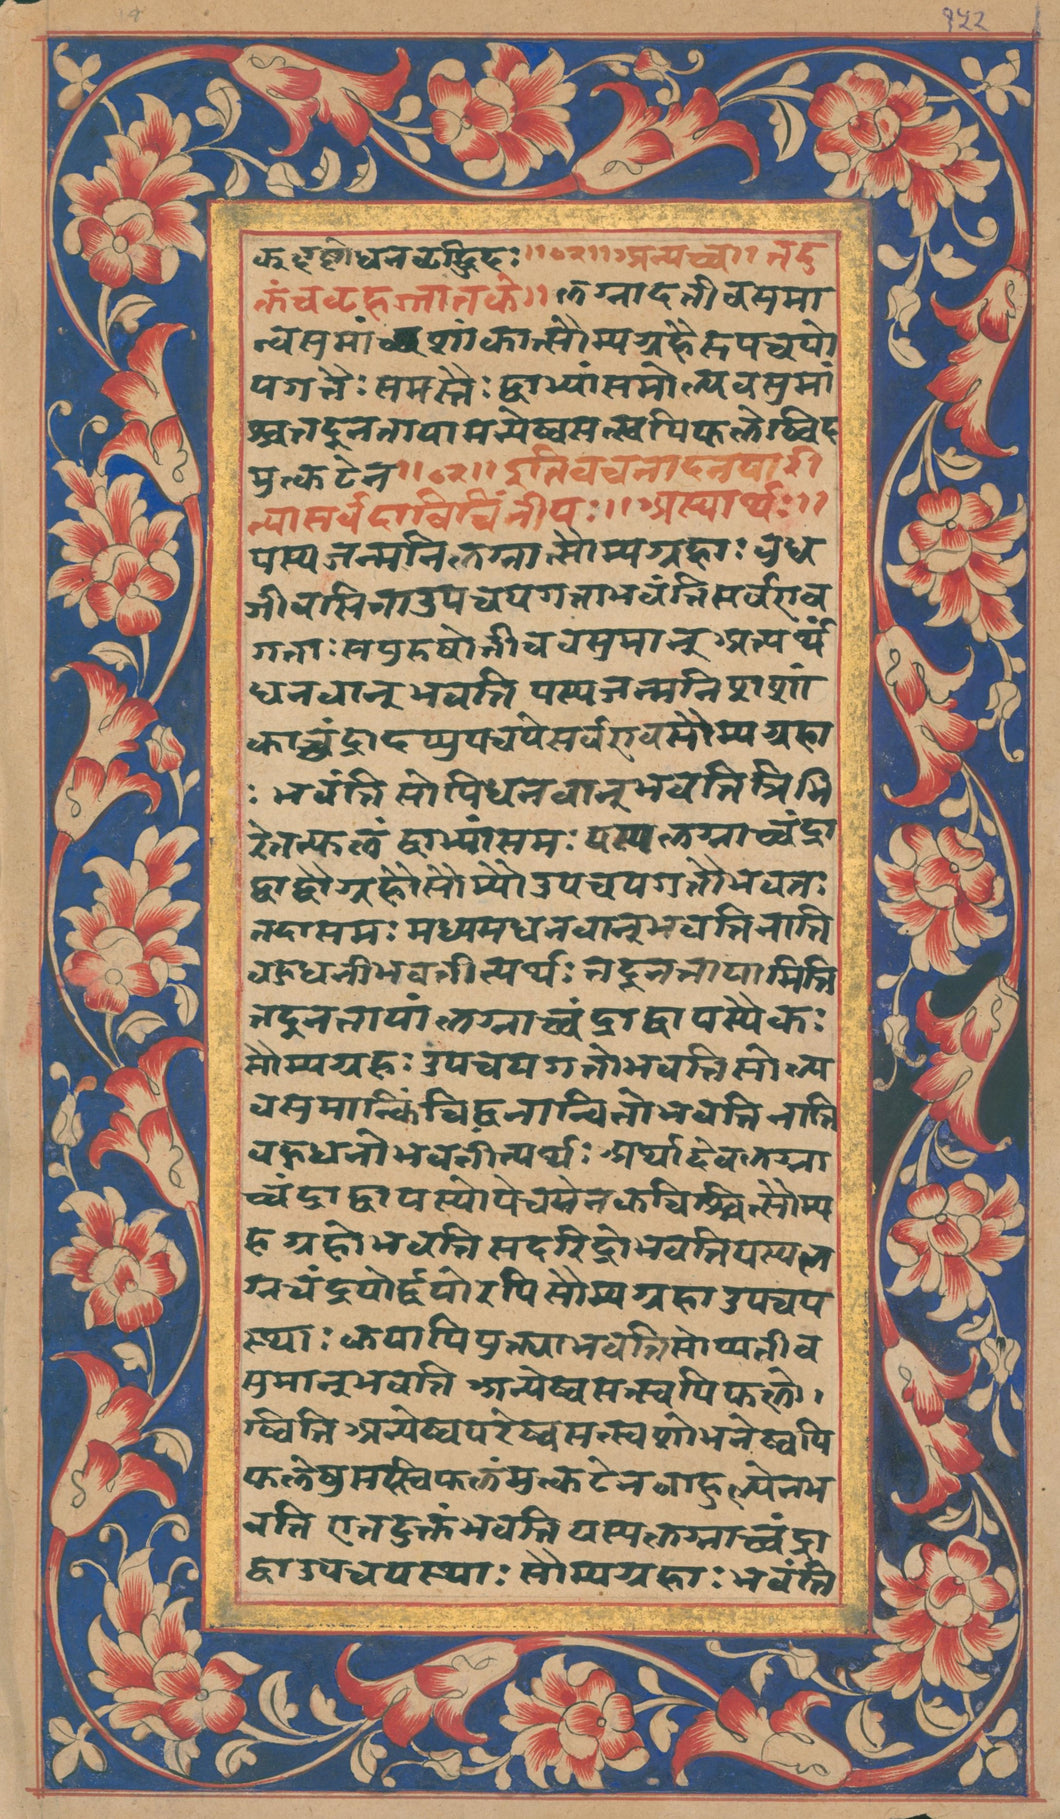 १५२
कुशुणोधनवद्भिदः ॥०२॥ अन्यच्च ॥ तदु
क्तं च वटहज्जातके ॥ लग्नादतीवसुमा
न्वसुमां शशांकात्सौम्यग्रहैरुपचयो
पगतैः समस्तैः द्वाभ्यां समोल्पवसुमां
श्वतदूनतायामन्येष्वसत्स्वपि फलेष्विद
मुत्कटेन ॥०२॥ इति वचनादनयारी
त्या सर्वदा विचिंतीयः ॥ अस्यार्थः ॥
यस्य जन्मनि लग्नात्सौम्यग्रहाः बुध
जीवसिता उपचयगता भवंति सर्व एव
गताः स पुरुषोतीव वसुमान् अत्यर्थं
धनवान् भवति यस्य जन्मनि शशां
काच्चंद्रादप्युपचये सर्व एव सौम्यग्रहा
ः भवंति सोपि धनवान् भवति त्रिभि
रेतत्फलं द्वाभ्यां समः यस्य लग्नाच्चंद्रा
द्वा द्वौ ग्रहौ सौम्यौ उपचयगतौ भवतः
तदा समः मध्यमधनवान् भवति नाति
वहुधनी भवतीत्यर्थः तदूनतायामिति
तदूनतायां लग्नाच्चंद्राद्वा यस्यैकः
सौम्यग्रहः उपचयगतो भवति सोल्प
वसुमान्किंचिद्धनान्वितो भवति नाति
वहुधनो भवतीत्यर्थः अर्थादेवलग्ना
च्चंद्राद्वा यस्योपचयेन कश्चित्सौम्य
ह ग्रहो भवति स दरिद्रो भवति यस्य ल
ग्नचंद्रयोर्द्वयोरपि सौम्यग्रहा उपचय
स्थाः भवति सोप्यतीव
सुमान् भवति अन्येष्वसत्स्वपि फले।
ष्विति अन्येष्वपरेष्वसत्स्वशोभनेष्वपि
फलेषु सत्स्विफलंमुत्कटेन वाहुल्येन भ
वति एतदुक्तं भवति यस्य लग्नाच्चंद्रा
द्वा उपचयस्थाः सौम्यग्रहाः भवंति